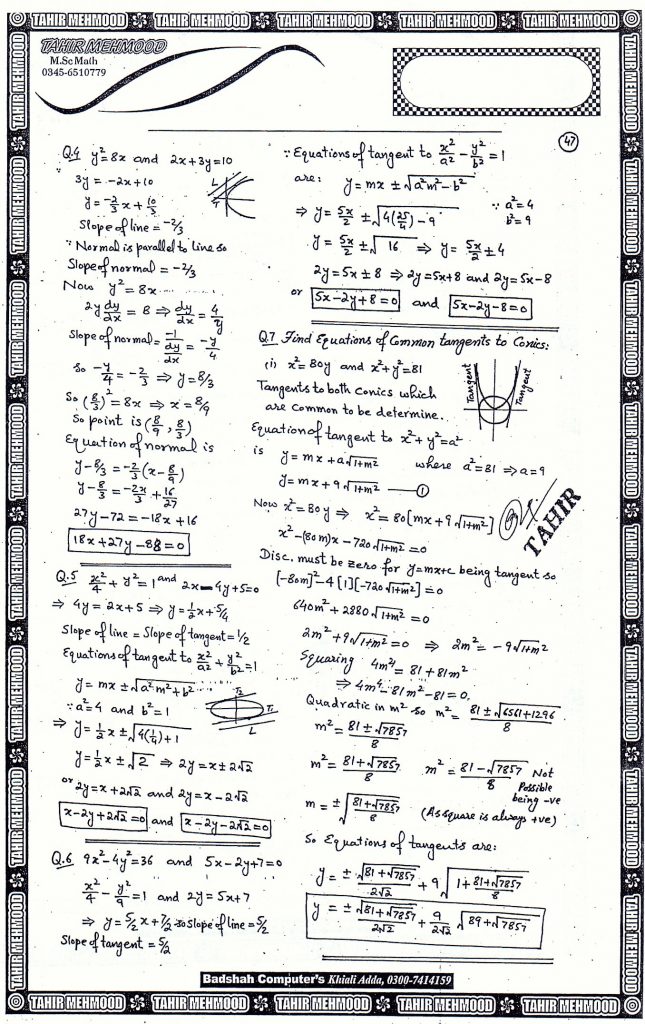 TAHIR MEHMOOD TAHIR MEHMOOD TAHIR MEHMOOD TAHIR MEHMOOD TAHIR MEHMOOD
TAHIR MEHMOOD
M.Sc Math
0345-6510779
47
Q.4 y²=8x and 2x+3y=10
3y = -2x+10
y = -2/3 x + 10/3
Slope of line = -2/3
∵ Normal is parallel to line so
Slope of normal = -2/3
Now y² = 8x
2y dy/dx = 8 ⇒ dy/dx = 4/y
Slope of normal = -1/(dy/dx) = -y/4
So -y/4 = -2/3 ⇒ y = 8/3
So (8/3)² = 8x ⇒ x = 8/9
So point is (8/9, 8/3)
Equation of normal is
y-8/3 = -2/3 (x-8/9)
y-8/3 = -2x/3 + 16/27
27y-72 = -18x+16
18x+27y-88=0
Q.5 x²/4 + y²=1 and 2x-4y+5=0
⇒ 4y = 2x+5 ⇒ y = 1/2 x + 5/4
Slope of line = Slope of tangent = 1/2
Equations of tangent to x²/a² + y²/b² = 1
y = mx ± √(a²m²+b²)
∵ a²=4 and b²=1
⇒ y = 1/2 x ± √(4(1/4)+1)
y = 1/2 x ± √2 ⇒ 2y = x ± 2√2
or 2y = x+2√2 and 2y = x-2√2
x-2y+2√2=0 and x-2y-2√2=0
Q.6 9x²-4y²=36 and 5x-2y+7=0
x²/4 - y²/9 = 1 and 2y = 5x+7
⇒ y = 5/2 x + 7/2 so Slope of line = 5/2
Slope of tangent = 5/2
∵ Equations of tangent to x²/a² - y²/b² = 1
are: y = mx ± √(a²m²-b²)
∵ a²=4
b²=9
⇒ y = 5x/2 ± √(4(25/4)-9)
y = 5x/2 ± √16 ⇒ y = 5x/2 ± 4
2y = 5x ± 8 ⇒ 2y = 5x+8 and 2y = 5x-8
or 5x-2y+8=0 and 5x-2y-8=0
Q.7 Find Equations of Common tangents to Conics:
(i) x²=80y and x²+y²=81
Tangents to both conics which
are common to be determine.
Tangent Tangent
Equation of tangent to x²+y²=a²
is y = mx + a√(1+m²) where a²=81 ⇒ a=9
y = mx + 9√(1+m²) — (1)
Now x²=80y ⇒ x² = 80[mx+9√(1+m²)]
TAHIR
x²-(80m)x-720√(1+m²)=0
Disc. must be zero for y=mx+c being tangent so
[-80m]²-4[1][-720√(1+m²)]=0
640m²+2880√(1+m²)=0
2m²+9√(1+m²)=0 ⇒ 2m² = -9√(1+m²)
Squaring 4m⁴ = 81+81m²
⇒ 4m⁴-81m²-81=0.
Quadratic in m² so m² = (81±√(6561+1296))/8
m² = (81±√7857)/8
m² = (81+√7857)/8 m² = (81-√7857)/8 Not
Possible
being -ve
m = ±√((81+√7857)/8) (As square is always +ve)
So Equations of tangents are:
y = ± √(81+√7857)/(2√2) + 9√(1+(81+√7857)/8)
y = ± √(81+√7857)/(2√2) + 9/(2√2) √(89+√7857)
Badshah Computer's Khiali Adda, 0300-7414159
TAHIR MEHMOOD TAHIR MEHMOOD TAHIR MEHMOOD TAHIR MEHMOOD TAHIR MEHMOOD